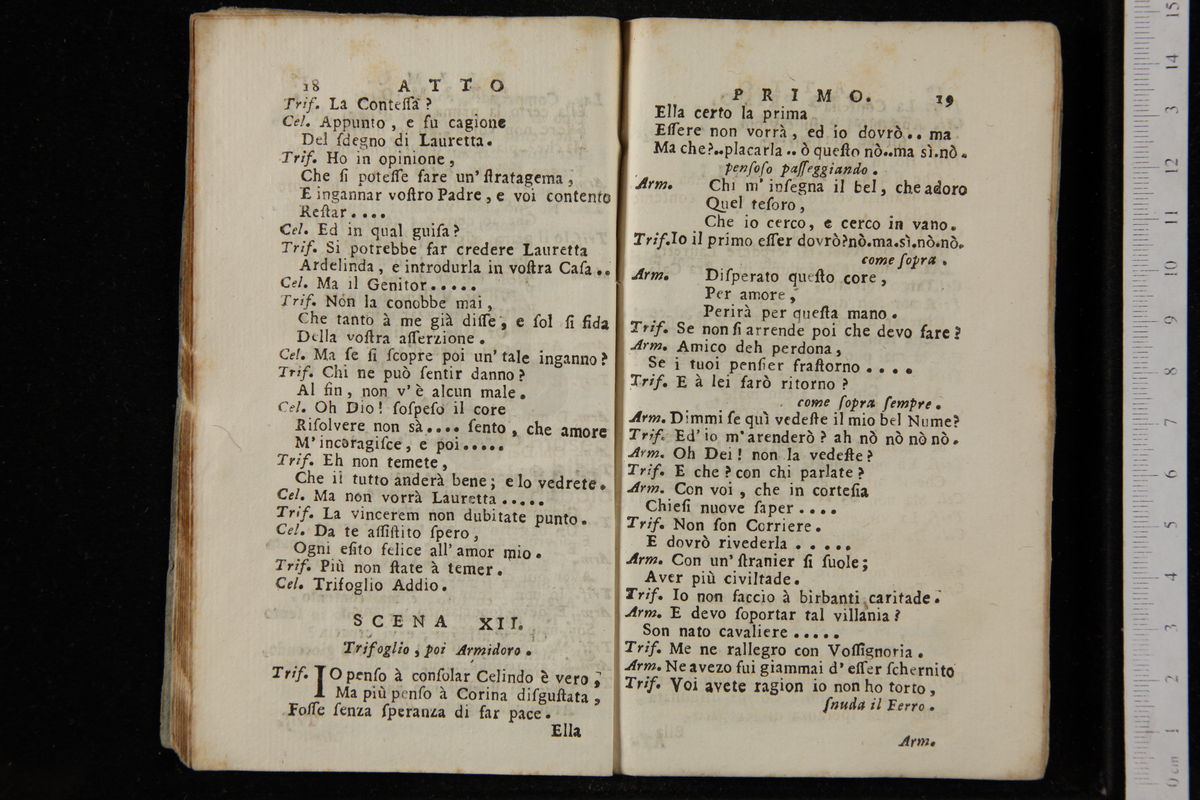 18 ATTO
Trif. La Conteſſa ?
Cel. Appunto , e fu cagione
Del ſdegno di Lauretta.
Trif. Ho in opinione ,
Che ſi poteſſe fare un' ſtratagema ,
E ingannar voſtro Padre , e voi contento
Reſtar . . . .
Cel. Ed in qual guiſa ?
Trif. Si potrebbe far credere Lauretta
Ardelinda , e introdurla in voſtra Caſa . .
Cel. Ma il Genitor . . . . .
Trif. Non la conobbe mai ,
Che tanto à me già diſſe , e ſol ſi fida
Della voſtra aſſerzione .
Cel. Ma ſe ſi ſcopre poi un' tale inganno ?
Trif. Chi ne può ſentir danno ?
Al fin , non v' è alcun male .
Cel. Oh Dio ! ſoſpeſo il core
Riſolvere non sà . . . . ſento , che amore
M' incoragiſce , e poi . . . . .
Trif. Eh non temete ,
Che il tutto anderà bene ; e lo vedrete .
Cel. Ma non vorrà Lauretta . . . . .
Trif. La vincerem non dubitate punto .
Cel. Da te aſſiſtito ſpero ,
Ogni eſito felice all' amor mio .
Trif. Più non ſtate à temer .
Cel. Trifoglio Addio .
SCENA XII.
Trifoglio , poi Armidoro .
Trif. IO penſo à conſolar Celindo è vero ,
Ma più penſo à Corina diſguſtata ,
Foſſe ſenza ſperanza di far pace .
Ella
PRIMO. 19
Ella certo la prima
Eſſere non vorrà , ed io dovrò . . ma
Ma che ? . . placarla . . ò queſto nò . . ma sì . nò .
penſoſo paſſeggiando .
Arm. Chi m' inſegna il bel , che adoro
Quel teſoro ,
Che io cerco , e cerco in vano .
Trif. Io il primo eſſer dovrò ? nò . ma . sì . nò . nò .
come ſopra .
Arm. Diſperato queſto core ,
Per amore ,
Perirà per queſta mano .
Trif. Se non ſi arrende poi che devo fare ?
Arm. Amico deh perdona ,
Se i tuoi penſier fraſtorno . . . .
Trif. E à lei farò ritorno ?
come ſopra ſempre .
Arm. Dimmi ſe quì vedeſte il mio bel Nume ?
Trif. Ed' io m' arenderò ? ah nò nò nò nò .
Arm. Oh Dei ! non la vedeſte ?
Trif. E che ? con chi parlate ?
Arm. Con voi , che in corteſia
Chieſi nuove ſaper . . . .
Trif. Non ſon Corriere .
E dovrò rivederla . . . . .
Arm. Con un' ſtranier ſi ſuole ;
Aver più civiltade .
Trif. Io non faccio à birbanti caritade .
Arm. E devo ſoportar tal villania ?
Son nato cavaliere . . . . .
Trif. Me ne rallegro con Voſſignoria .
Arm. Ne avezo fui giammai d' eſſer ſchernito
Trif. Voi avete ragion io non ho torto ,
ſnuda il Ferro .
Arm.
0 cm 1 2 3 4 5 6 7 8 9 10 11 12 13 14 15